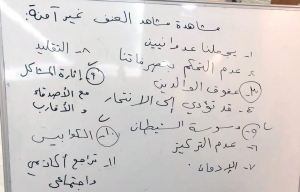 مشاهدة مشاهد العنف غير آمنة:
١- يجعلنا عدوانيين
٢- عدم التحكم بتصرفاتنا
٣- عقوق الوالدين
٤- قد تؤدي إلى الانتحار
٥- وسوسة الشيطان
٦- عدم التركيز
٧- الإدمان
٨- التقليد
٩- إثارة المشاكل
مع الأصدقاء
و الأقارب
١٠- الكوابيس
١١- تراجع أكاديمي
واجتماعي